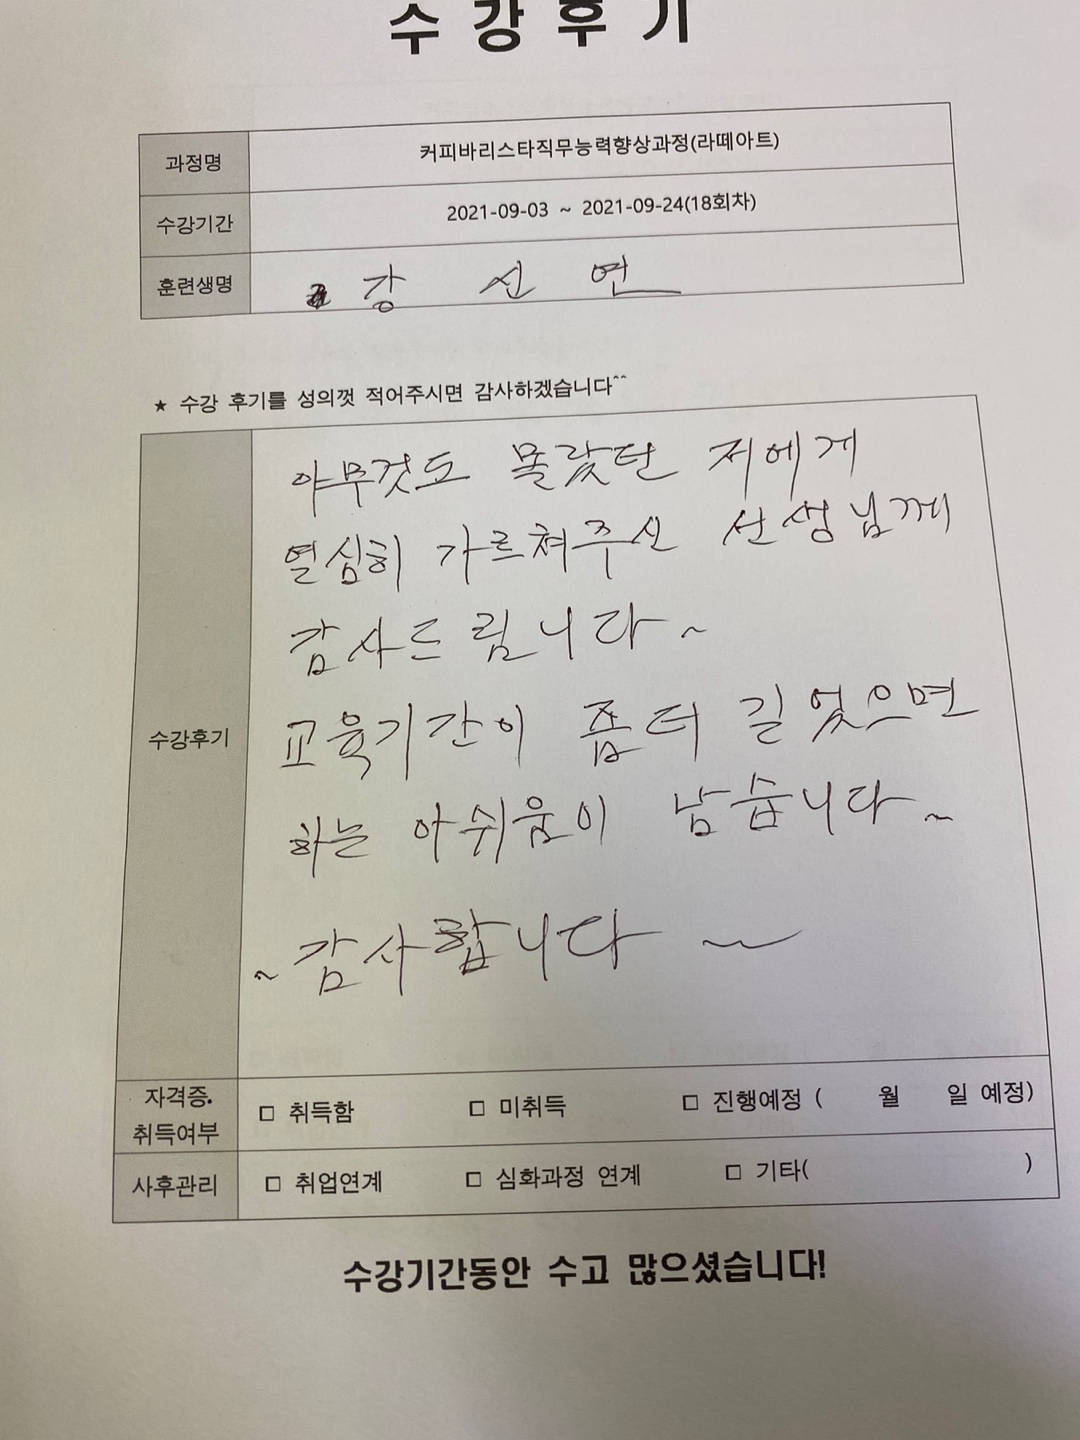 수강후기
과정명 커피바리스타직무능력향상과정(라떼아트)
수강기간 2021-09-03 ~ 2021-09-24(18회차)
훈련생명 강 신 연
★ 수강 후기를 성의껏 적어주시면 감사하겠습니다^^
아무것도 몰랐던 저에게
열심히 가르쳐주신 선생님께
감사드립니다~
교육기간이 좀더 길었으면
수강후기
하는 아쉬움이 남습니다~
~감사합니다~
자격증. 취득여부 □ 취득함 □ 미취득 □ 진행예정 ( 월 일 예정)
사후관리 □ 취업연계 □ 심화과정 연계 □ 기타( )
수강기간동안 수고 많으셨습니다!